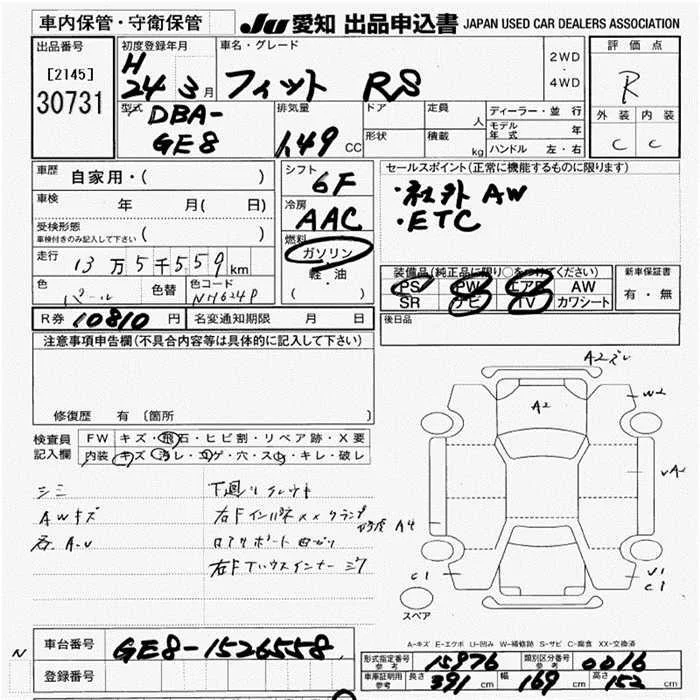 車内保管・守衛保管
JU 愛知 出品申込書 JAPAN USED CAR DEALERS ASSOCIATION
出品番号
[2145]
30731
初度登録年月
H
24 3月
車名・グレード
フィット RS
2WD
・
4WD
評価点
R
外装 内装
C C
型式
DBA-
GE8
排気量
1.49 CC
ドア
形状
定員 人
積載 kg
ディーラー・並行
モデル年式 年
ハンドル 左・右
車歴 自家用・( )
車検 年 月( 日)
受検形態
車検付きのみ記入して下さい ( )
走行 13万5千559km
色 パール 色替 色コード NH624P
R券 10810 円 名変通知期限 月 日
シフト
6F
冷房
AAC
燃料
ガソリン
軽・油
( )
セールスポイント(正常に機能するものに限ります)
・社外AW
・ETC
装備品(純正品に限り○をつけてください)
PS PW エアB AW
SR ナビ TV カワシート
新車保証書
有・無
後日品
注意事項申告欄(不具合内容等は具体的に記入して下さい)
修復歴 有〔箇所
検査員記入欄
FW キズ・飛石・ヒビ割・リペア跡・X要
内装 キズ・汚レ・コゲ・穴・スレ・キレ・破レ
シミ
AWキズ
下廻り
右Fインパネ XX
右F インナー
A2
W2
A4
C1
V1
C1
スペア
A-キズ E-エクボ U-凹み W-補修跡 S-サビ C-腐食 XX-交換済
N
車台番号 GE8-1526558
登録番号
形式指定番号 参考 15976 類別区分番号 参考 0016
車庫証明用 参考 長さ 391cm 幅 169cm 高さ 152cm